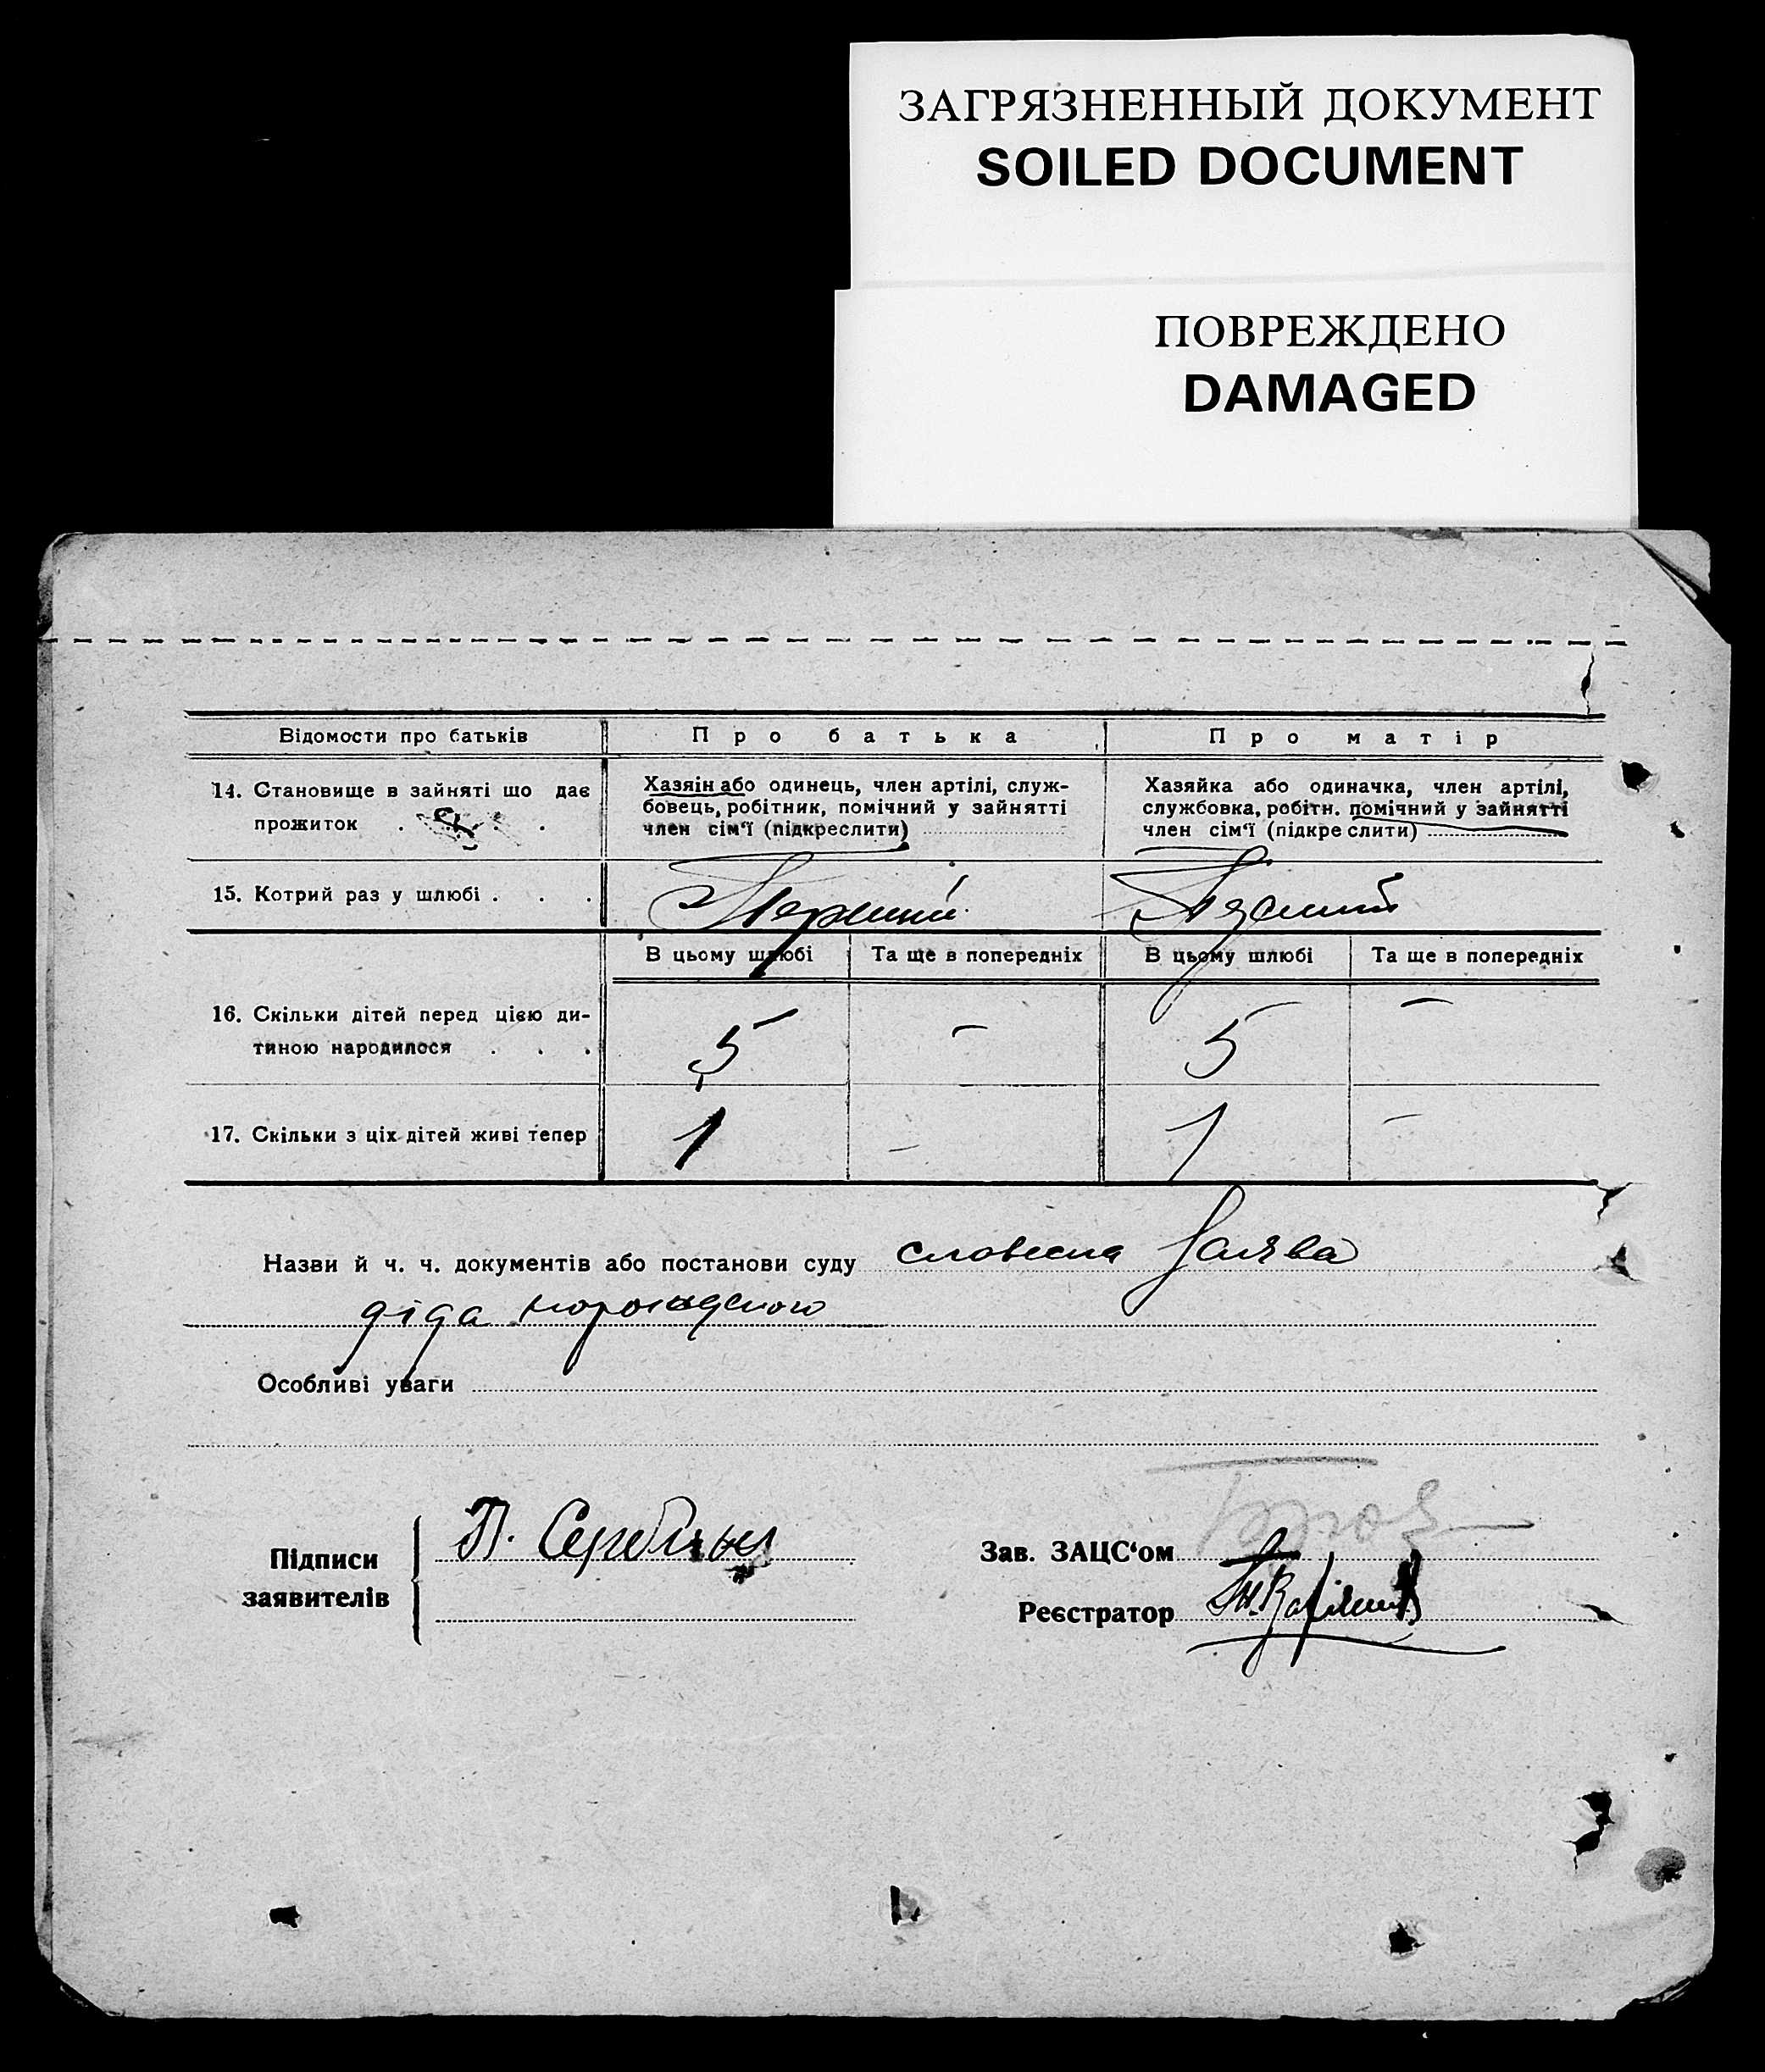 ЗАГРЯЗНЕННЫЙ ДОКУМЕНТ
SOILED DOCUMENT
ПОВРЕЖДЕНО
DAMAGED
Відомости про батьків
Про батька
Про матір
14. Становище в зайняті що дає
прожиток . . . .
Хазяін або одинець, член артілі, служ-
бовець, робітник, помічний у зайнятті
член сім'ї (підкреслити)
Хазяйка або одиначка, член артілі,
службовка, робітн. помічний у зайнятті
член сім'ї (підкреслити)
15. Котрий раз у шлюбі . . .
Перший
В цьому шлюбі
Та ще в попередніх
В цьому шлюбі
Та ще в попередніх
16. Скільки дітей перед цією ди-
тиною народилося . . .
5 – 5 –
17. Скільки з ціх дітей живі тепер
1 – 1 –
Назви й ч. ч. документів або постанови суду словесна заява
діда
Особливі уваги
Підписи
заявителів
П.
Зав. ЗАЦС'ом
Реєстратор